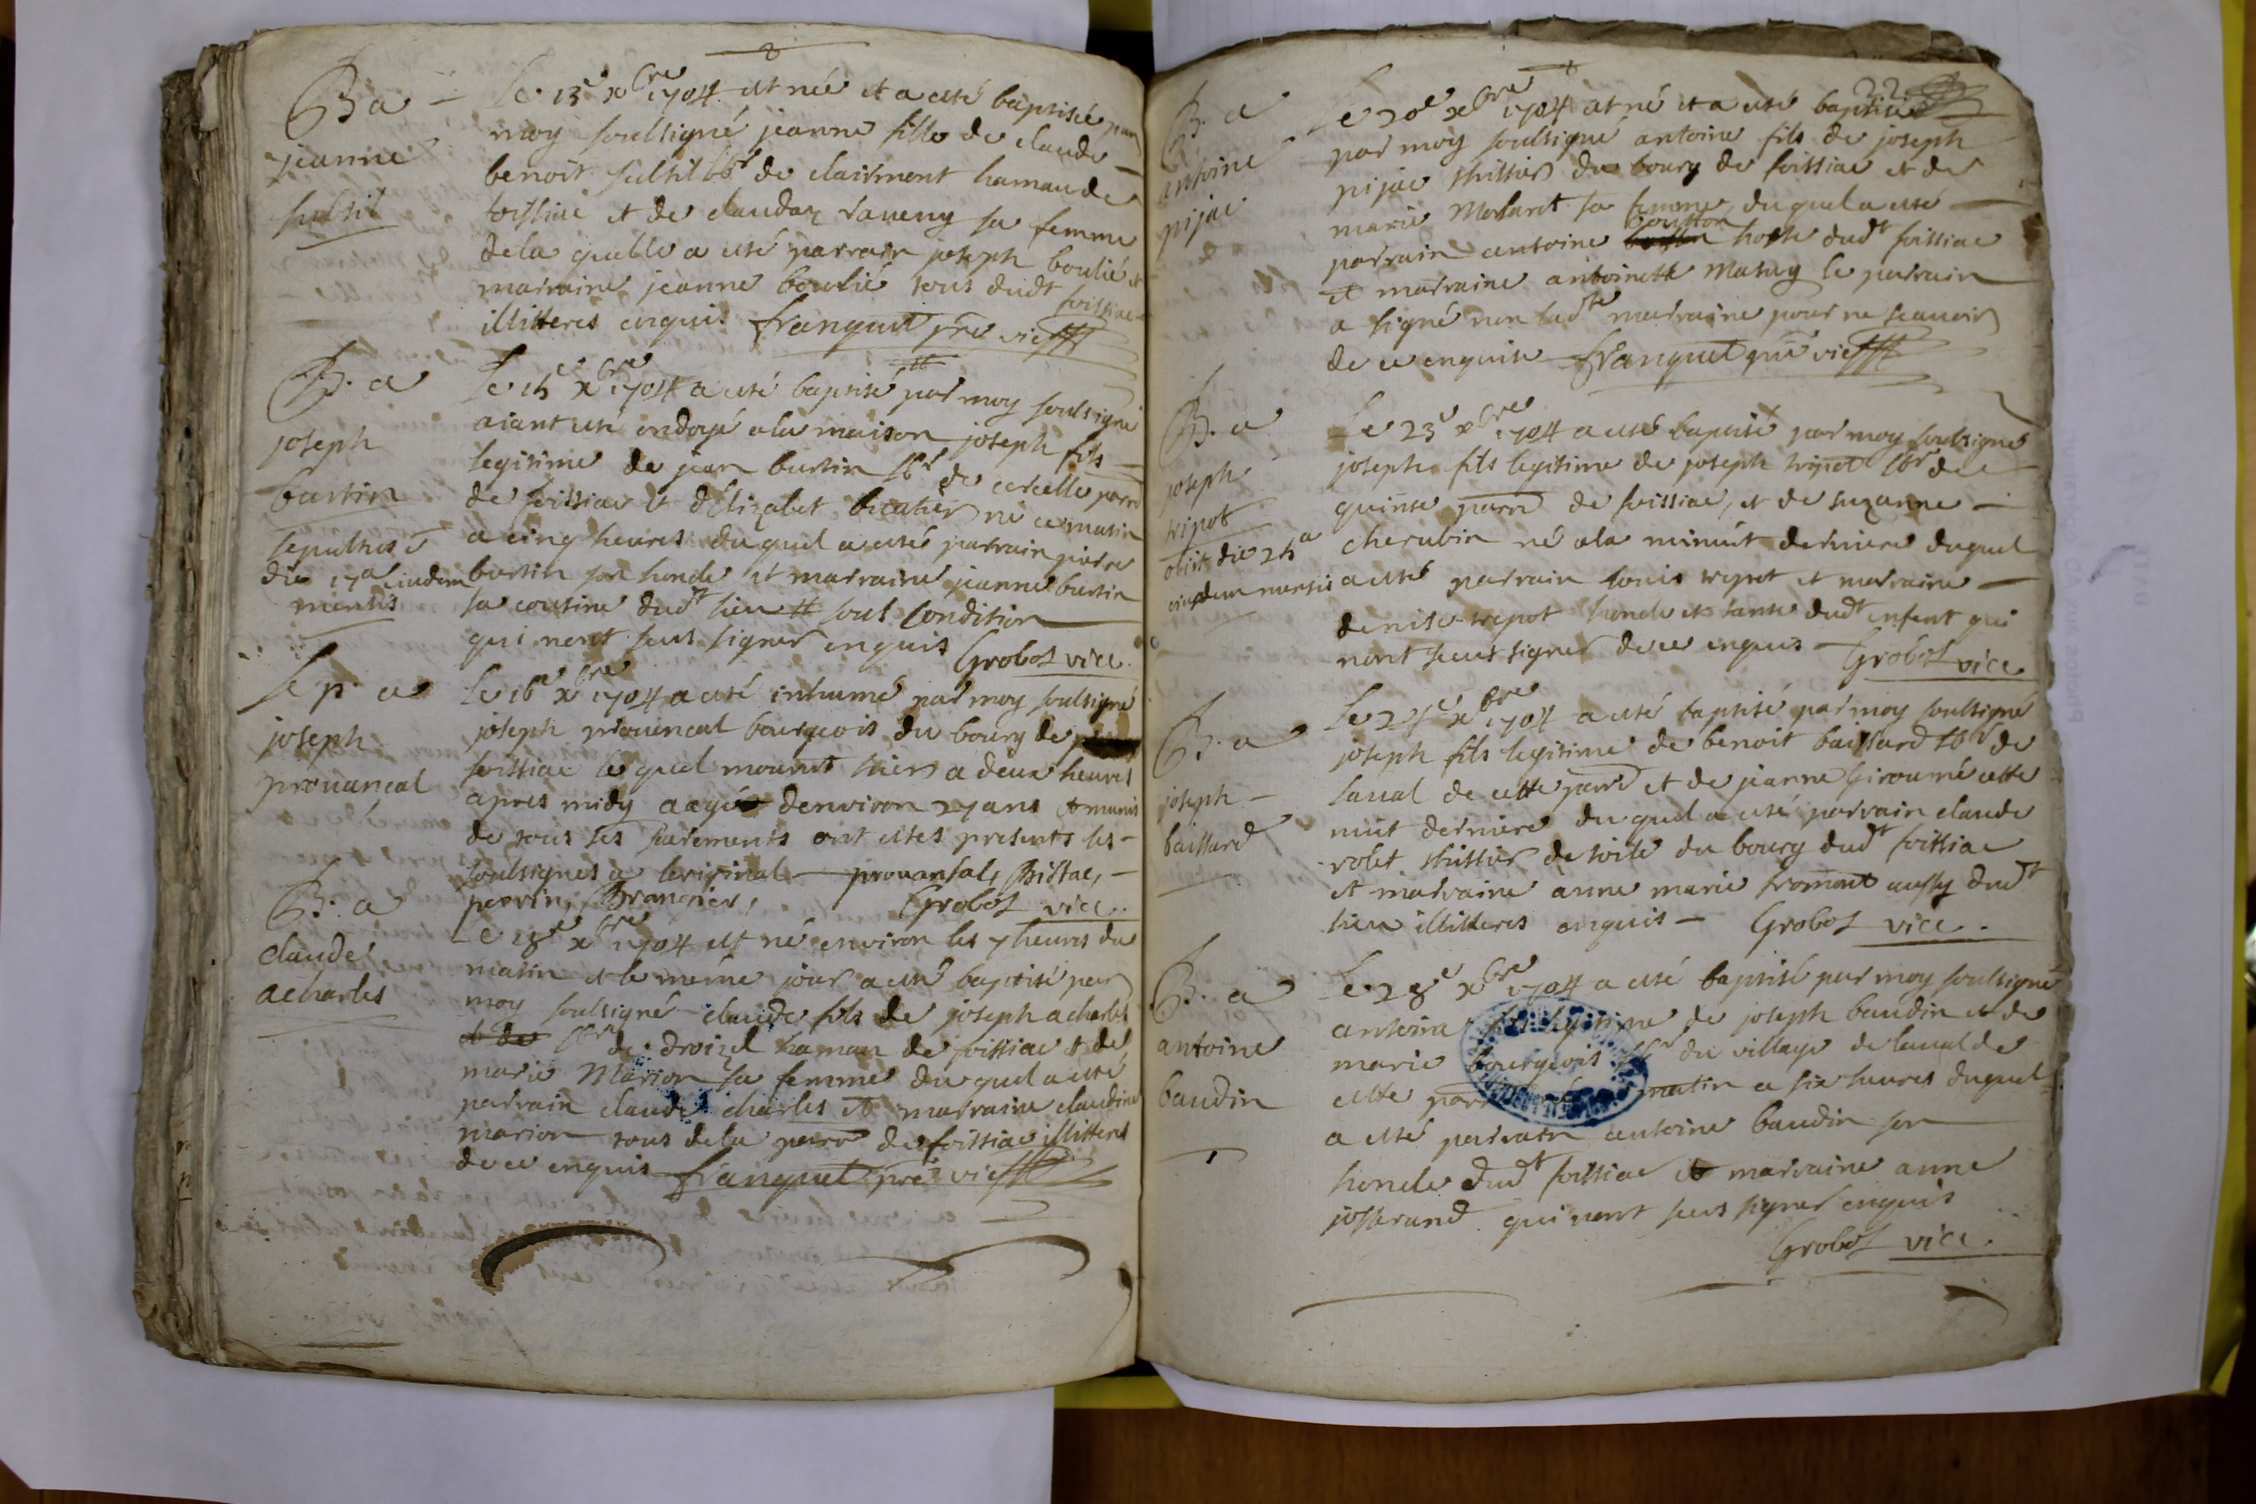 Ba
jeanne
subtil
Le 13e xbre 1704 est née et a esté baptisée par
moy soulsigné jeanne fille de claude
benoit subtil lbr de clairmont hamau de
foissiac et de claudaz raveny sa femme
de la quelle a esté parrain joseph boulié et
marraine jeanne boulié tous dudt foissiac
illitteres enquis franquet pre vic
B. a
joseph
burtin
sepultus è
die 17a eiusdem
mensis
Le 15e xbre 1704 a esté baptisé par moy soulsigné
aiant esté ondoyé a la maison joseph fils
legitime de jean burtin lbr de corcelle parr
de foissiac et d'élizabet né ce matin
a cinq heures duquel a esté parrain pierre
burtin son honcle et marraine jeanne burtin
sa cousine dudt lieu # sous condition
qui nont sceus signer enquis Grobos vice.
Sep. a
joseph
prouancal
Le 16e xbre 1704 a esté inhumé par moy soulsigné
joseph prouencal bourgeois du bourg de
foissiac le quel mourut hier a deux heures
apres midy aagé denviron 27 ans et munis
de tous ses sacrements ont estes presents les
soulsignes a loriginal prouansal, Bissac,
perrin, Brangier, Grobos vice.
B. a
claude
acharles
Le 18e xbre 1704 est né environ les 7 heures du
matin et le meme jour a esté baptisé par
moy soulsigné claude fils de joseph acharles
et de lbr de droizel hamau de foissiac et de
marie Marion sa femme duquel a esté
parrain claude charles et marraine claudine
marion tous de la parr de foissiac illitteres
de ce enquis franquet pre vic
22.
B. a
antoine
pijac
Le 20e xbre 1704 est né et a esté baptisé
par moy soulsigné antoine fils de joseph
pijac thissier du bourg de foissiac et de
marie Morharet sa femme, duquel a esté
parrain antoine bouillon hoste dudt foissiac
et marraine antoinette Mathy le parrain
a signé non ladte marraine pour ne scauoir
de ce enquise franquet pre vic
B. a
joseph
tripot
obiit die 25a
eiusdem mensis
Le 23e xbre 1704 a esté baptisé par moy soulsigné
joseph fils legitime de joseph tripot lbr de
quinte parr de foissiac, et de suzanne
cherubin né a la minuit derniere duquel
a esté parrain louis tripot et marraine
denise tripot honcle et tante dudt enfent qui
nont sceus signer de ce enquis Grobos vice
B. a
joseph
baissard
Le 27e xbre 1704 a esté baptisé par moy soulsigné
joseph fils legitime de benoit baissard lbr de
laual de cette parr et de jeanne giroud né cette
nuit derniere duquel a esté parrain claude
rolet thissier de toile du bourg dudt foissiac
et marraine anne marie fromont aussy dudt
lieu illitteres enquis Grobos vice.
B. a
antoine
baudin
Le 28e xbre 1704 a esté baptisé par moy soulsigné
antoine fils legitime de joseph baudin et de
marie bourgeois lbr du village de laual de
cette parr matin a six heures duquel
a esté parrain antoine baudin son
honcle dudt foissiac et marraine anne
josserand qui nont sceus signer enquis
Grobos vice.